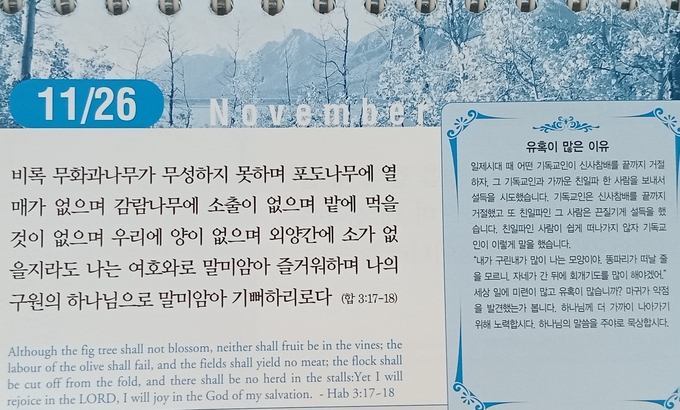 11/26
November
비록 무화과나무가 무성하지 못하며 포도나무에 열
매가 없으며 감람나무에 소출이 없으며 밭에 먹을
것이 없으며 우리에 양이 없으며 외양간에 소가 없
을지라도 나는 여호와로 말미암아 즐거워하며 나의
구원의 하나님으로 말미암아 기뻐하리로다 (합 3:17-18)
Although the fig tree shall not blossom, neither shall fruit be in the vines; the
labour of the olive shall fail, and the fields shall yield no meat; the flock shall
be cut off from the fold, and there shall be no herd in the stalls:Yet I will
rejoice in the LORD, I will joy in the God of my salvation. - Hab 3:17-18
유혹이 많은 이유
일제시대 때 어떤 기독교인이 신사참배를 끝까지 거절
하자, 그 기독교인과 가까운 친일파 한 사람을 보내서
설득을 시도했습니다. 기독교인은 신사참배를 끝까지
거절했고 또 친일파인 그 사람은 끈질기게 설득을 했
습니다. 친일파인 사람이 쉽게 떠나가지 않자 기독교
인이 이렇게 말을 했습니다.
"내가 구린내가 많이 나는 모양이야. 똥파리가 떠날 줄
을 모르니, 자네가 간 뒤에 회개기도를 많이 해야겠어."
세상 일에 미련이 많고 유혹이 많습니까? 마귀가 약점
을 발견했는가 봅니다. 하나님께 더 가까이 나아가기
위해 노력합시다. 하나님의 말씀을 주야로 묵상합시다.